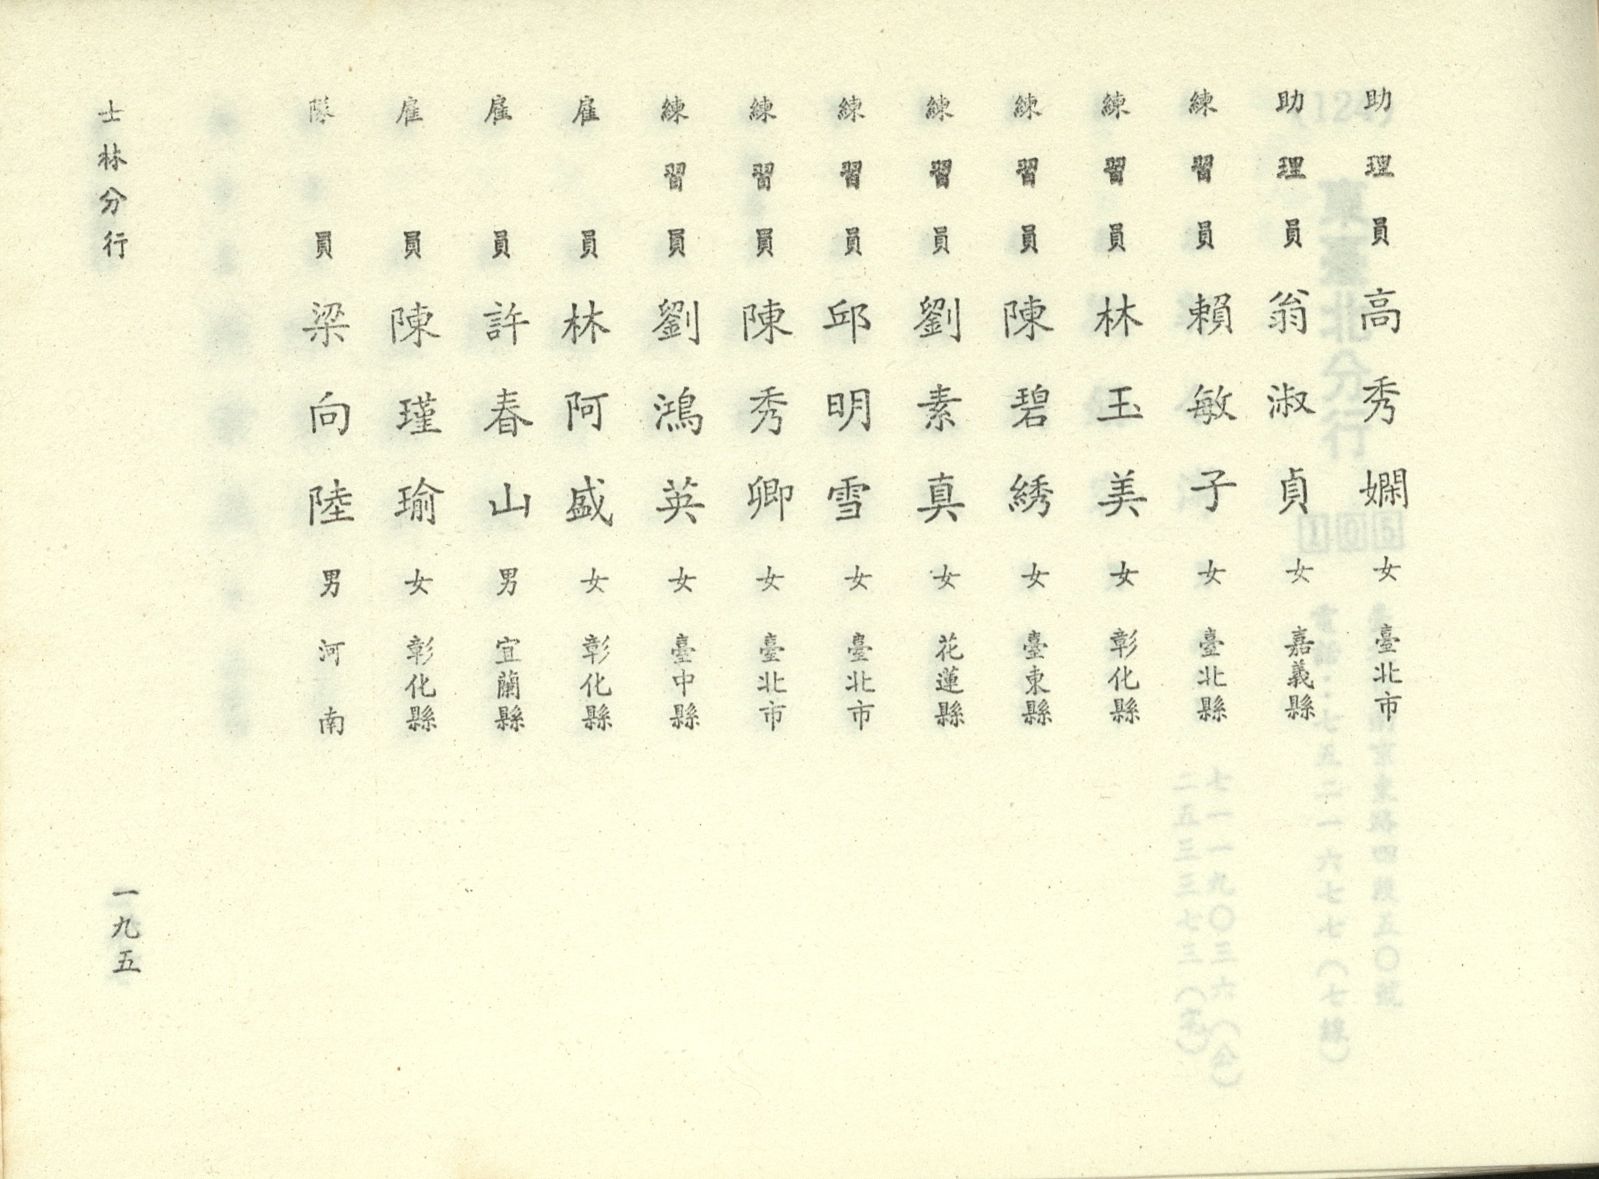 助理員 高秀嫻 女 臺北市
助理員 翁淑貞 女 嘉義縣
練習員 賴敏子 女 臺北縣
練習員 林玉美 女 彰化縣
練習員 陳碧綉 女 臺東縣
練習員 劉素真 女 花蓮縣
練習員 邱明雪 女 臺北市
練習員 陳秀卿 女 臺北市
練習員 劉鴻英 女 臺中縣
雇員 林阿盛 女 彰化縣
雇員 許春山 男 宜蘭縣
雇員 陳瑾瑜 女 彰化縣
隊員 梁向陸 男 河南
士林分行
一九五